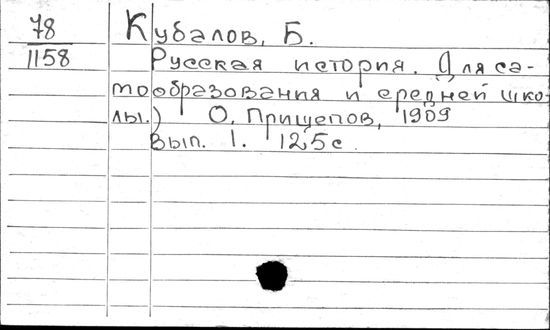 78
1158
Кубалов, Б.
Русская история. (Для са-
мообразования и средней шко-
лы.) О. Прищепов, 1909
Вып. 1. 125 с.